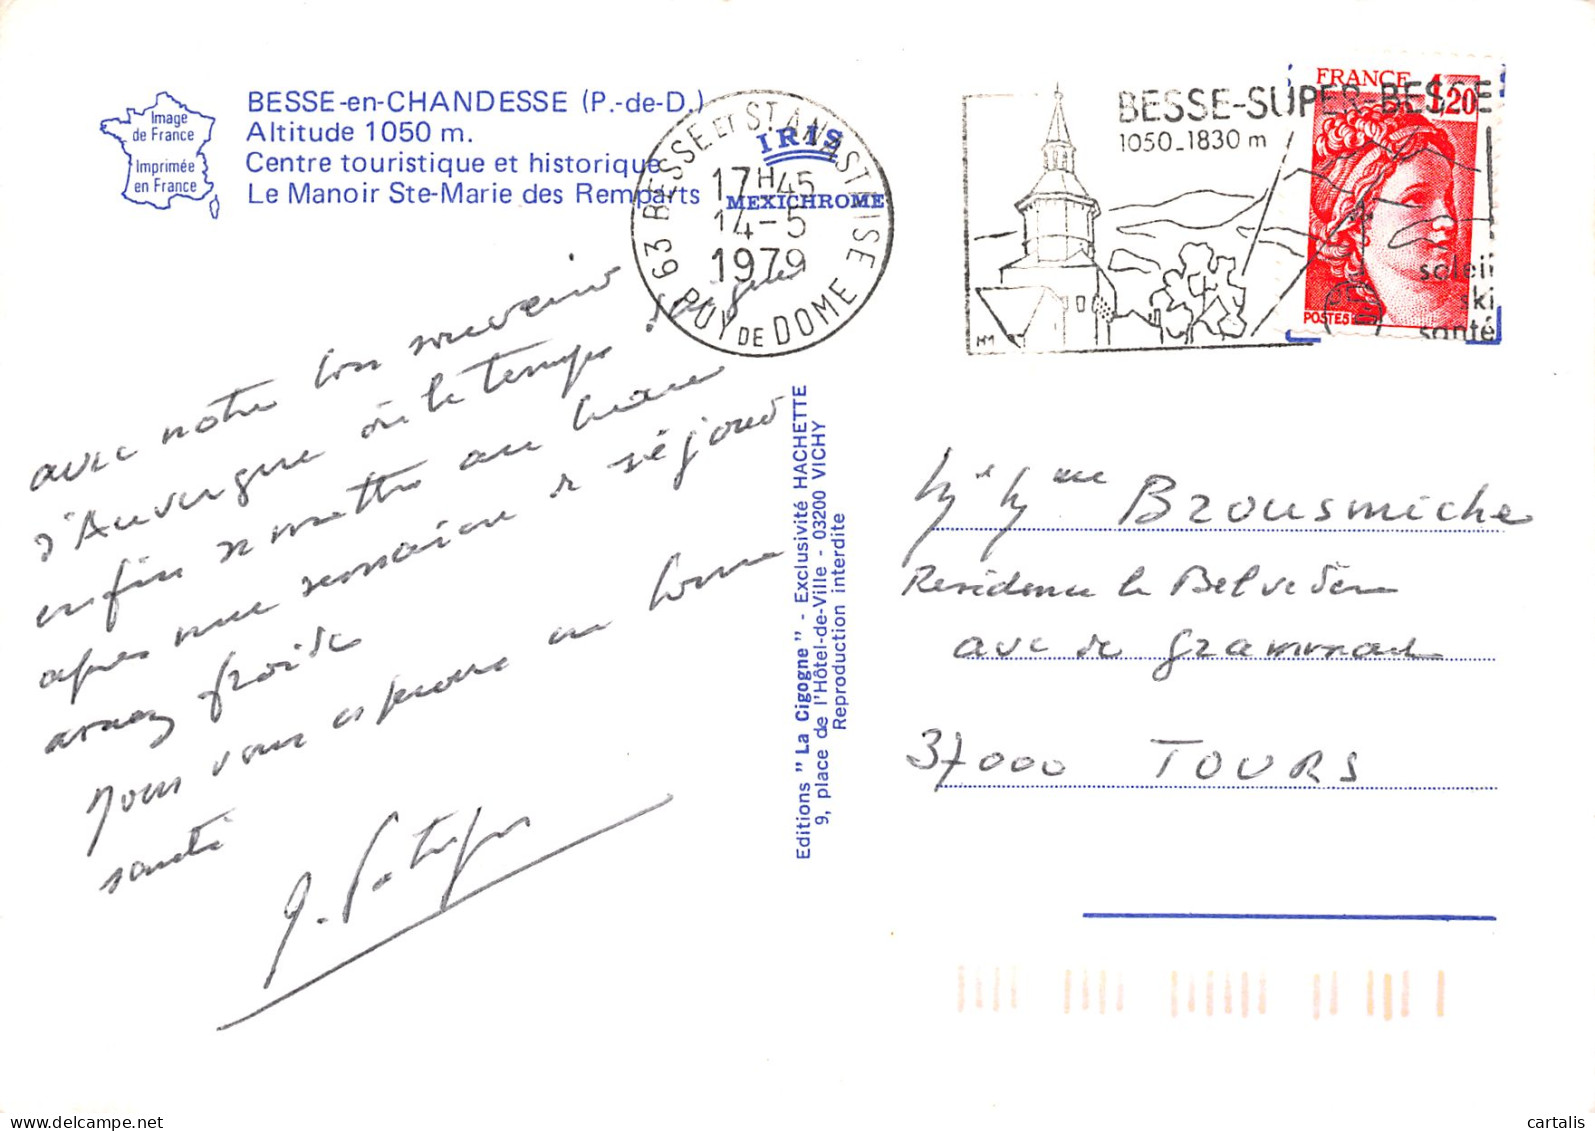 Image
de France
Imprimée
en France
BESSE-en-CHANDESSE (P.-de-D.)
Altitude 1050 m.
Centre touristique et historique
Le Manoir Ste-Marie des Remparts
IRIS
MEXICHROME
63 BESSE ET ST ANASTAISE
17H45
14-5
1979
PUY DE DOME
BESSE-SUPER-BESSE
1050_1830 m
soleil
ski
santé
HM
FRANCE
1,20
POSTES
avec notre bon souvenir
d'Auvergne où le temps daigne
enfin se mettre au beau
après une semaine de séjour
assez froide
Nous vous espérons en bonne
santé
Editions " La Cigogne " - Exclusivité HACHETTE
9, place de l'Hôtel-de-Ville - 03200 VICHY
Reproduction interdite
M et Mme Brousmiche
Residence le Belvedère
ave de Grammont
37000 TOURS
cartalis | www.delcampe.net